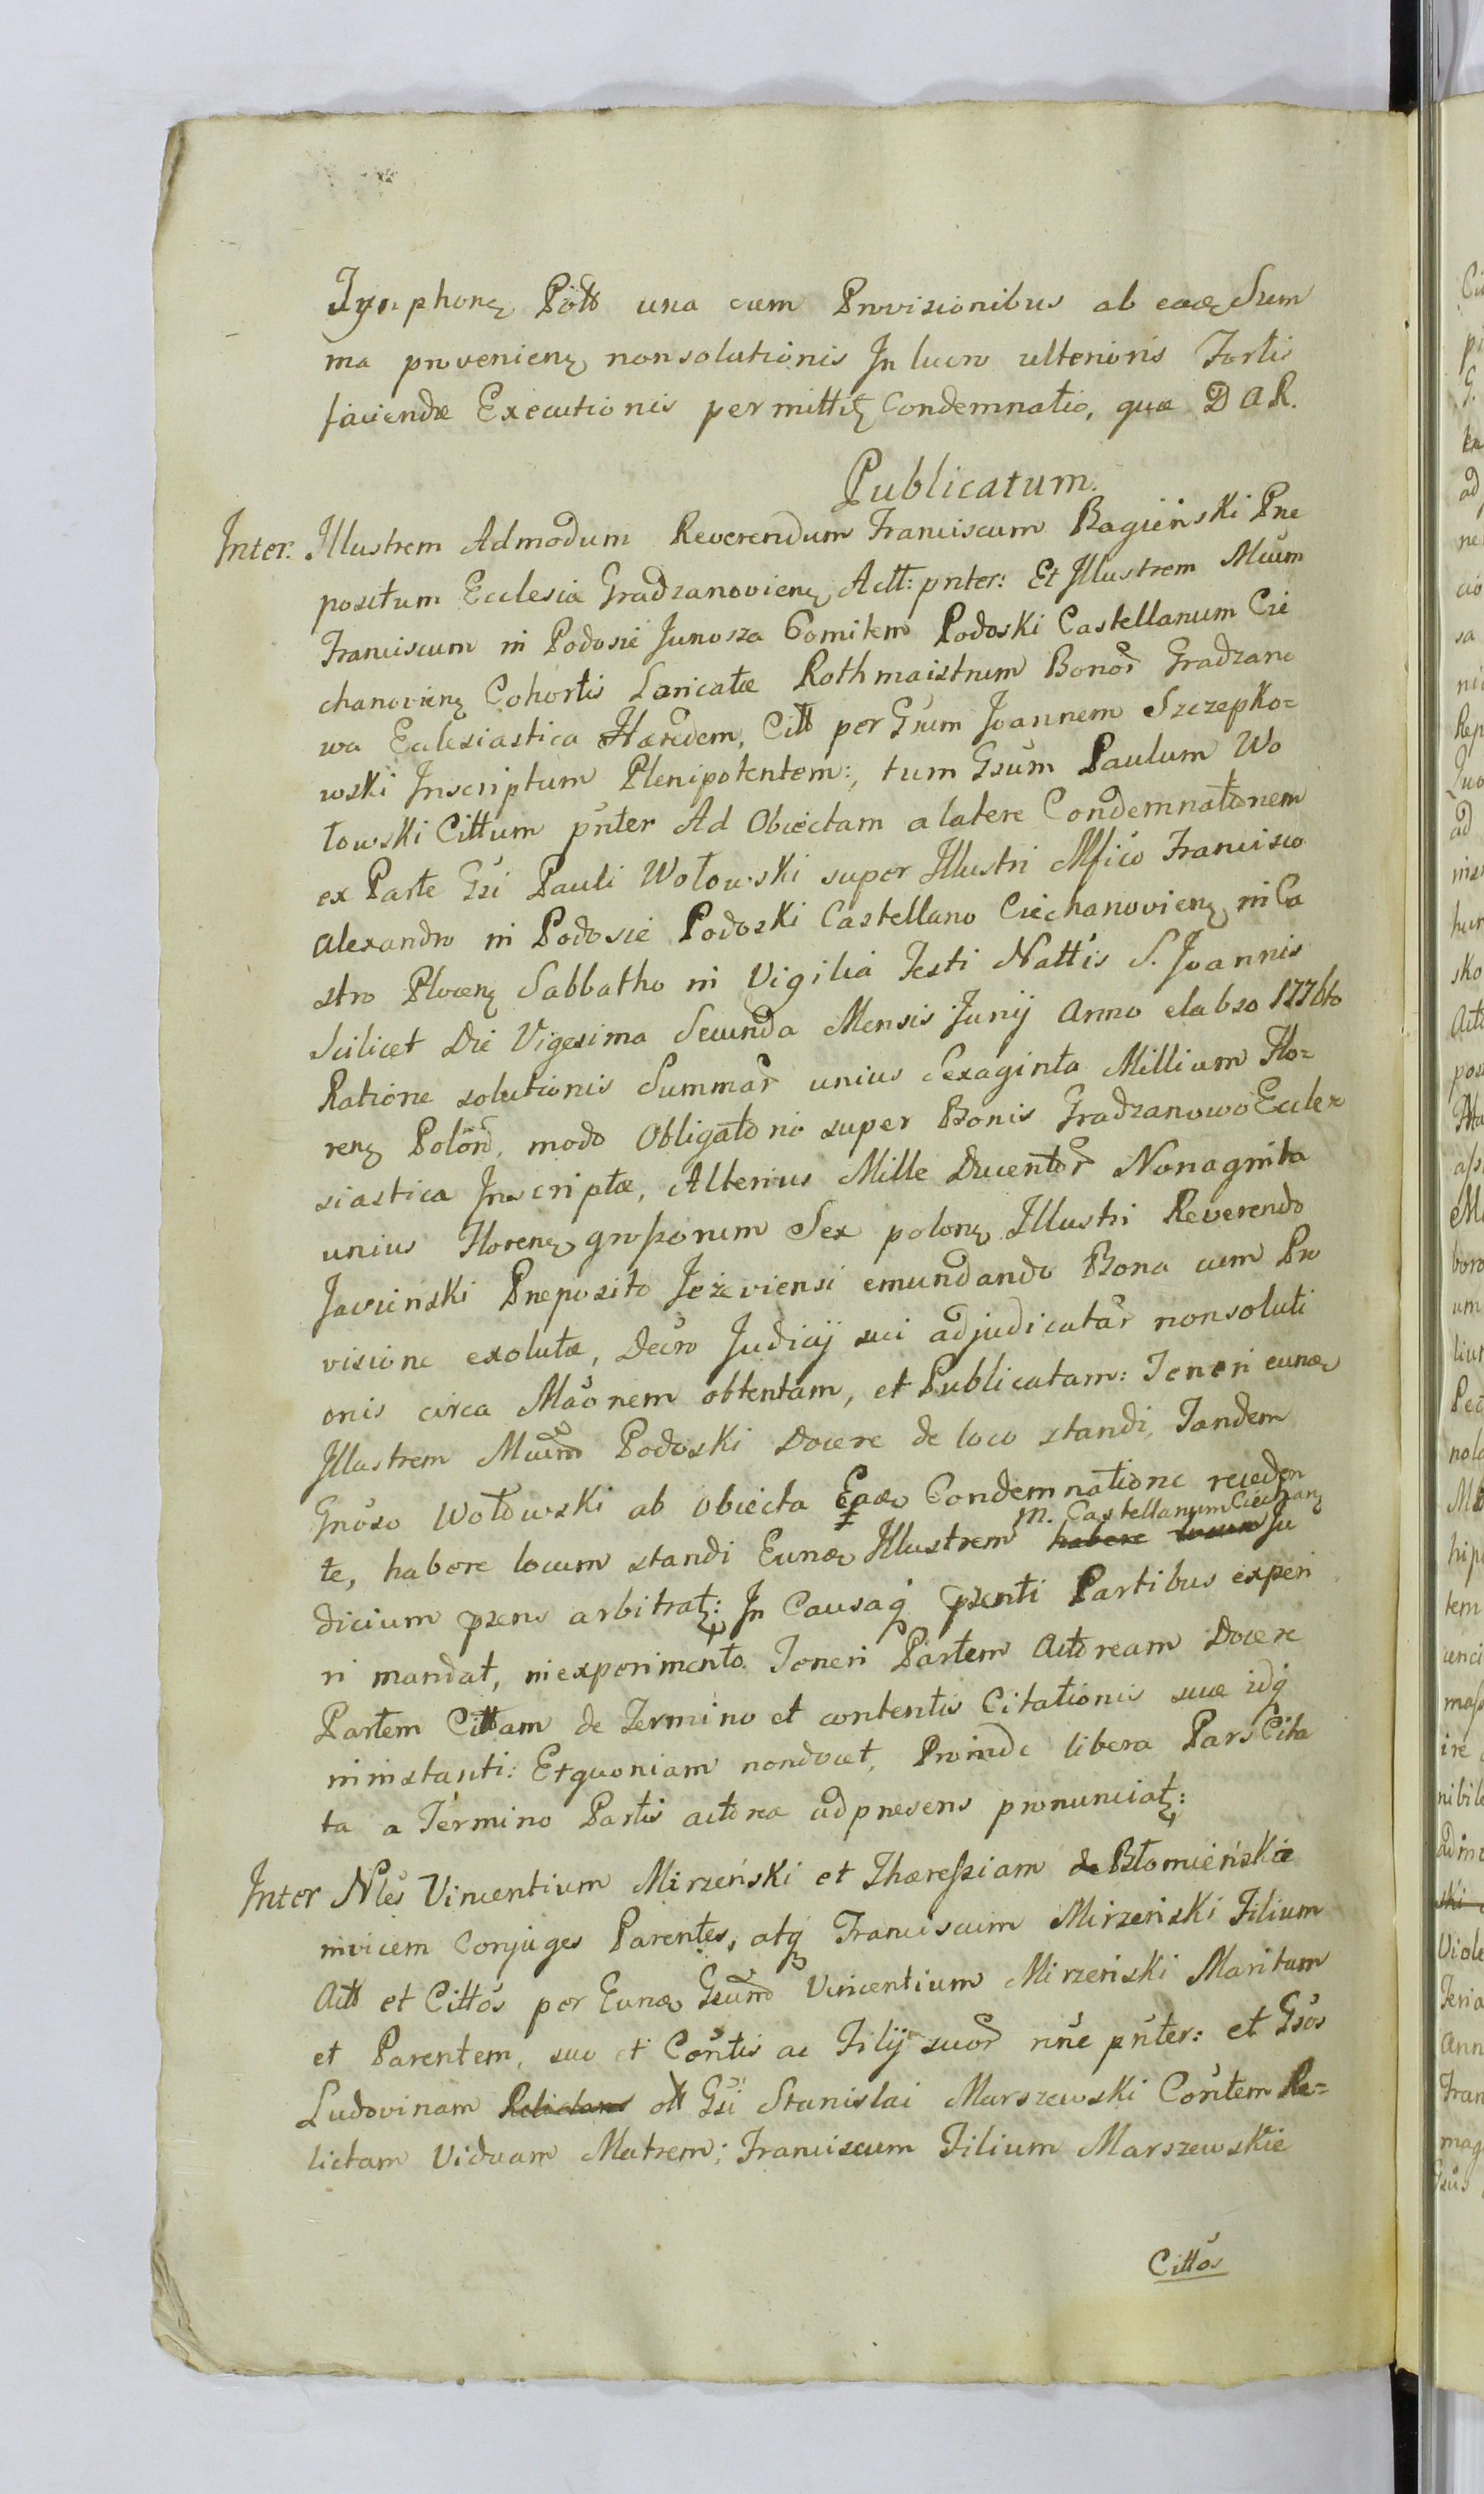 Tymphonę Pôtt una cum Provisionibus ab eadę Sum
ma provenienę nonsolutionis In lucro ulterioris Fortis
faciendæ Executionis permittitę Condemnatio, quæ D A R.
Publicatum.
Inter. Illustrem Admodum Reverendum Franciscum Bagieński Præ
positum Ecclesiæ Gradzanovienę Actt: pnter: Et Illustrem Mcum
Franciscum in Podosie Junosza Comitem Podoski Castellanum Cie
chanovienę Cohortis Loricatæ Rothmaistrum Bonor Gradzano
wa Eclesiastica Hæredem, Citt per Gsum Joannem Szczepko=
wski Inscriptum Plenipotentem:, tum Gsum Paulum Wo
łowski Cittum pnter Ad Obiectam a latere Condemnationem
ex Parte Gsi Pauli Wołowski super Illustri Mfico Francisco
Alexandro in Podosie Podoski Castellano Ciechanovienę in Ca
stro Plocenę Sabbatho in Vigilia Festi Nattis S. Joannis
Scilicet Die Vigesima Secunda Mensis Junij Anno elabso 1776to
Ratione solutionis Summar unius Sexaginta Millium Flo=
renę Polon, modo Obligatorio super Bonis Gradzanowo Eccle
siastica Inscriptæ, Alterius Mille Ducentor Nonaginta
unius Florenę großorum Sex polonę Illustri Reverendo
Javieński Præposito Jeżeviensi emundando Bona cum Pro
visione exolutæ, Decro Judicij sui adjudicatar nonsoluti
onis circa Maonem obtentam, et Publicatam: Teneri eundę
Illustrem Mcum Podoski Docere de loco standi, Tandem
Gnoso Wołowski ab obiecta Eadę Condemnatione receden
te, habere locum standi Eundę Illustrem M. Castellanum Ciechanę habere locum Ju
dicium præns arbitratę: In Causaq prænti Partibus experi
ri mandat, in experimento Teneri Partem Actoream Docere
Partem Cittam de Termino et contentis Citationis suæ idq
ininstanti: Et quoniam nondocet, Proinde libera Pars Cita
ta a Termino Partis actorea ad presens pronunciatę:
Inter Nles Vincentium Mirzeński et Thæreßiam de Błomieńskie
invicem Conjuges Parentes, atq Franciscum Mirzeński Filium
Actt et Cittos per Eundę Gsum Vincentium Mirzeński Maritum
et Parentem, suo et Contis ac Filij suor nne pnter: et Gsos
Ludovinam Relictam ott Gsi Stanislai Marszewski Contem Re=
lictam Viduam Matrem; Franciscum Filium Marszewskie
Cittos